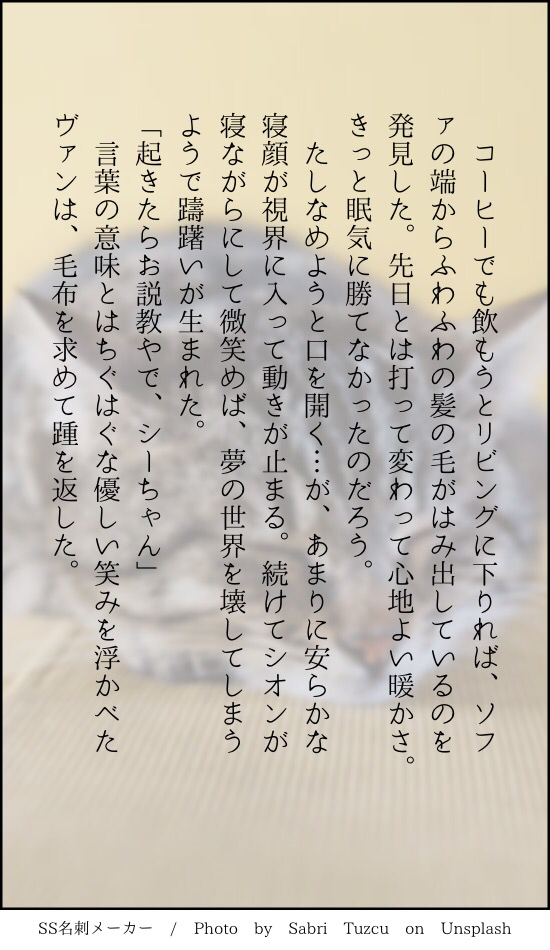 コーヒーでも飲もうとリビングに下りれば、ソフ
ァの端からふわふわの髪の毛がはみ出しているのを
発見した。先日とは打って変わって心地よい暖かさ。
きっと眠気に勝てなかったのだろう。
　たしなめようと口を開く…が、あまりに安らかな
寝顔が視界に入って動きが止まる。続けてシオンが
寝ながらにして微笑めば、夢の世界を壊してしまう
ようで躊躇いが生まれた。
「起きたらお説教やで、シーちゃん」
　言葉の意味とはちぐはぐな優しい笑みを浮かべた
ヴァンは、毛布を求めて踵を返した。
SS名刺メーカー　/　Photo　by　Sabri　Tuzcu　on　Unsplash